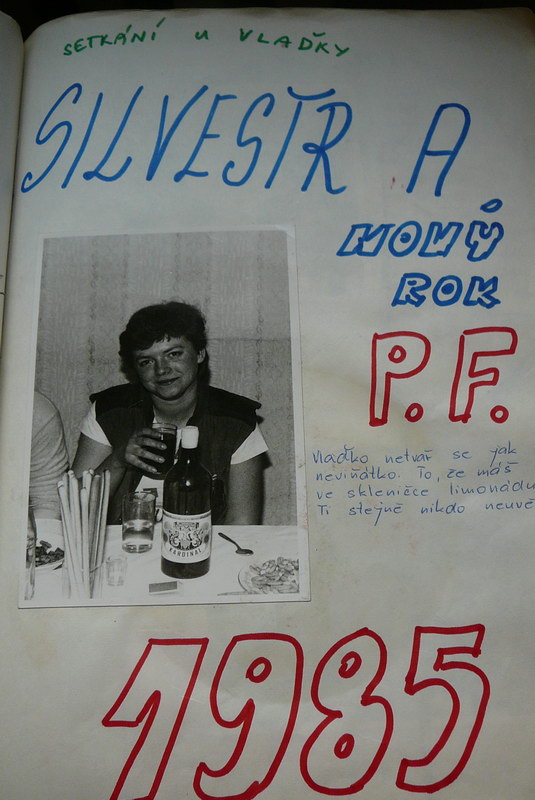 SETKÁNÍ u VLAĎKY
SILVESTR A
NOVÝ
ROK
P.F.
Vlaďko netvař se jak
neviňátko. To, že máš
ve skleničce limonádu
Ti stejně nikdo neuvě
KARDINAL
1985